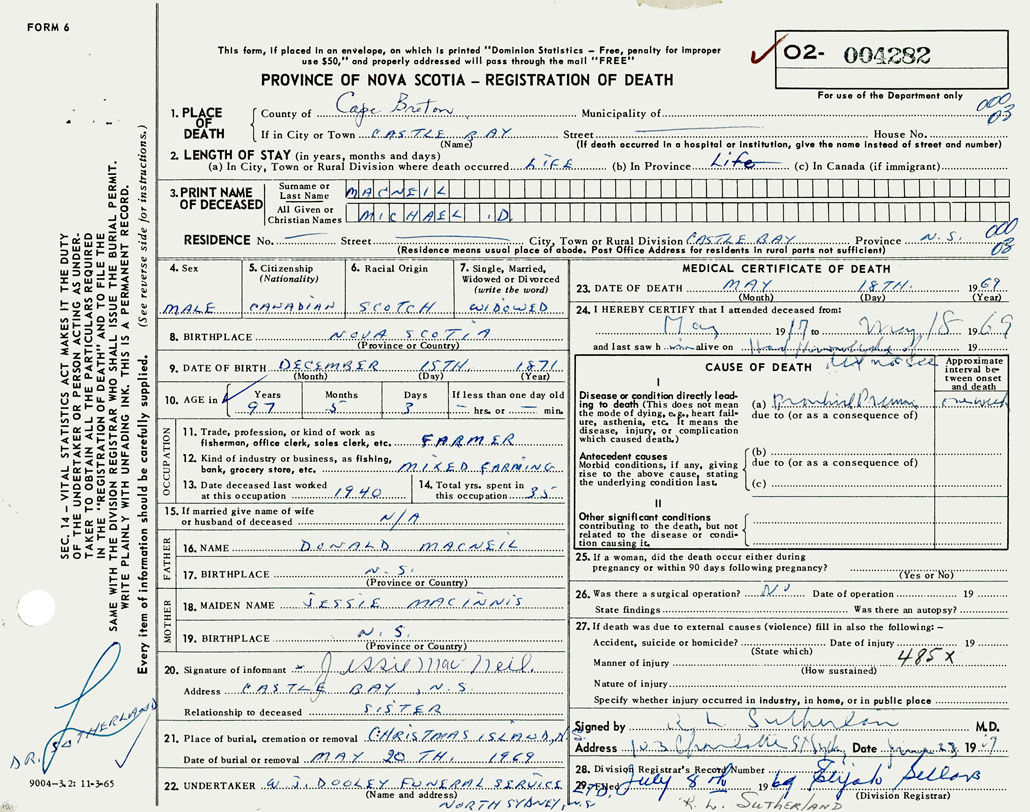 FORM 6
This form, if placed in an envelope, on which is printed "Dominion Statistics – Free, penalty for improper
use $50," and properly addressed will pass through the mail "FREE"
O2- 004282
For use of the Department only
PROVINCE OF NOVA SCOTIA – REGISTRATION OF DEATH
000
03
1. PLACE OF DEATH
County of Cape Breton Municipality of
If in City or Town CASTLE BAY Street House No.
(Name) (If death occurred in a hospital or institution, give the name instead of street and number)
2. LENGTH OF STAY (in years, months and days)
(a) In City, Town or Rural Division where death occurred LIFE (b) In Province Life (c) In Canada (if immigrant)
3. PRINT NAME OF DECEASED
Surname or Last Name MACNEIL
All Given or Christian Names MICHAEL .D.
000
03
RESIDENCE No. Street City, Town or Rural Division CASTLE BAY Province N.S.
(Residence means usual place of abode. Post Office Address for residents in rural parts not sufficient)
4. Sex MALE
5. Citizenship (Nationality) CANADIAN
6. Racial Origin SCOTCH
7. Single, Married, Widowed or Divorced (write the word) WIDOWED
8. BIRTHPLACE NOVA SCOTIA
(Province or Country)
9. DATE OF BIRTH DECEMBER 15TH. 1871
(Month) (Day) (Year)
10. AGE in Years 97 Months 5 Days 3 If less than one day old – hrs. or – min.
OCCUPATION
11. Trade, profession, or kind of work as
fisherman, office clerk, sales clerk, etc. FARMER
12. Kind of industry or business, as fishing,
bank, grocery store, etc. MIXED FARMING
13. Date deceased last worked at this occupation 1940
14. Total yrs. spent in this occupation 35
15. If married give name of wife
or husband of deceased N/A
FATHER
16. NAME DONALD MACNEIL
17. BIRTHPLACE N.S.
(Province or Country)
MOTHER
18. MAIDEN NAME JESSIE MACINNIS
19. BIRTHPLACE N.S.
(Province or Country)
20. Signature of informant Jessie MacNeil.
Address CASTLE BAY, N.S.
Relationship to deceased SISTER
21. Place of burial, cremation or removal CHRISTMAS ISLAND, N.S.
Date of burial or removal MAY 20 TH. 1969
22. UNDERTAKER W.J. DOOLEY FUNERAL SERVICE
(Name and address)
NORTH SYDNEY, N.S.
MEDICAL CERTIFICATE OF DEATH
23. DATE OF DEATH MAY 18TH. 1969
(Month) (Day) (Year)
24. I HEREBY CERTIFY that I attended deceased from:
May 1917 to May 18 1969
and last saw him alive on
did not see
CAUSE OF DEATH
Approximate interval between onset and death
I
Disease or condition directly leading to death (This does not mean
the mode of dying, e.g., heart failure, asthenia, etc. It means the
disease, injury, or complication
which caused death.)
(a) one week
due to (or as a consequence of)
Antecedent causes
Morbid conditions, if any, giving
rise to the above cause, stating
the underlying condition last.
(b)
due to (or as a consequence of)
(c)
II
Other significant conditions
contributing to the death, but not
related to the disease or condition causing it.
25. If a woman, did the death occur either during
pregnancy or within 90 days following pregnancy?
(Yes or No)
26. Was there a surgical operation? No Date of operation 19
State findings Was there an autopsy?
27. If death was due to external causes (violence) fill in also the following: –
Accident, suicide or homicide? Date of injury 19
(State which)
Manner of injury 485x
(How sustained)
Nature of injury
Specify whether injury occurred in industry, in home, or in public place
Signed by R. L. Sutherland M.D.
Address 103 Charlotte St Sydney Date 23 19
28. Division Registrar's Record Number
29. Filed July 8th 1969 Elijah Sellars
(Division Registrar)
R. L. SUTHERLAND
SEC. 14 – VITAL STATISTICS ACT MAKES IT THE DUTY
OF THE UNDERTAKER OR PERSON ACTING AS UNDERTAKER TO OBTAIN ALL THE PARTICULARS REQUIRED
IN THE "REGISTRATION OF DEATH" AND TO FILE THE
SAME WITH THE DIVISION REGISTRAR WHO SHALL ISSUE THE BURIAL PERMIT.
WRITE PLAINLY WITH UNFADING INK. THIS IS A PERMANENT RECORD.
Every item of information should be carefully supplied. (See reverse side for instructions.)
DR. SUTHERLAND
9004-3.2: 11-3-65